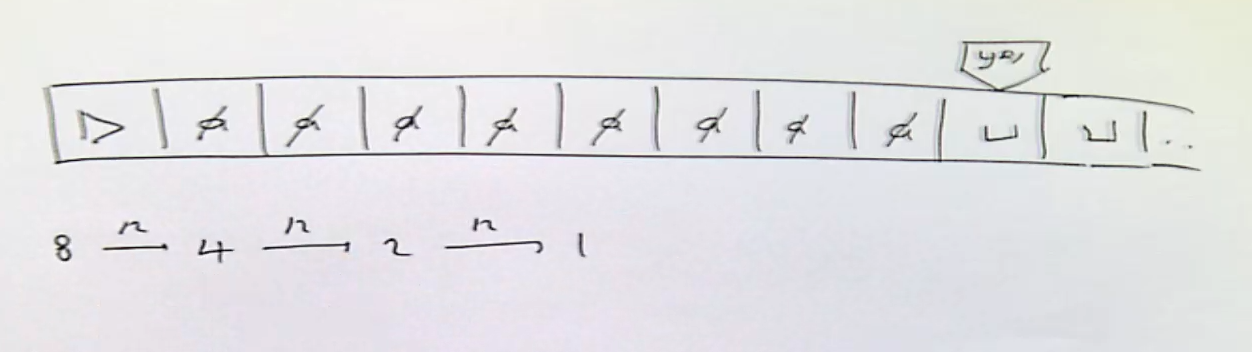 yes
▷ a̸ a̸ a̸ a̸ a̸ a̸ a̸ a̸ ⊔ ⊔ ..
8 n→ 4 n→ 2 n→ 1